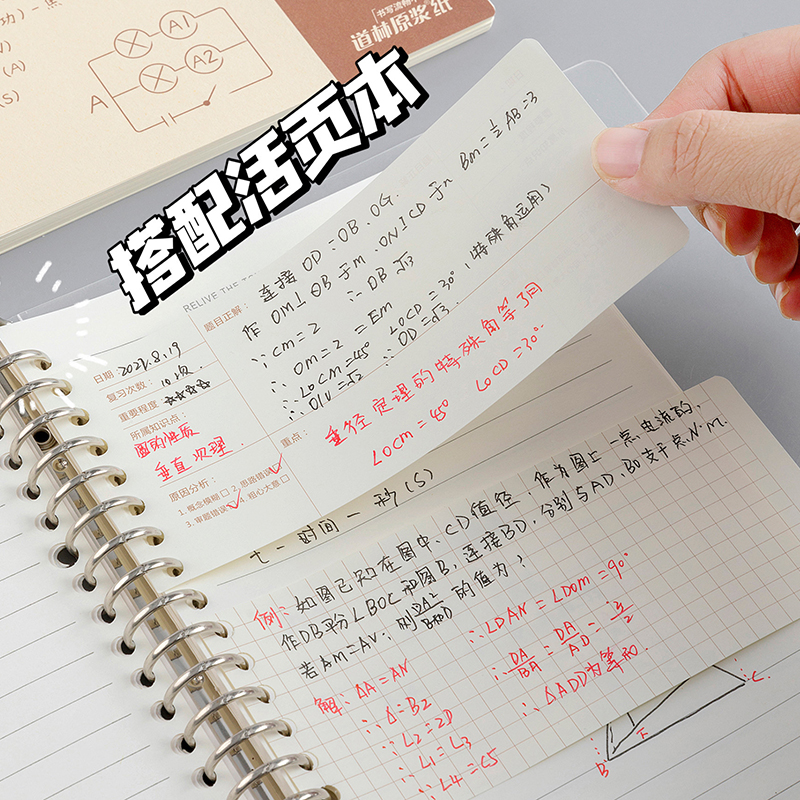 A1
A2
(A)
(S)
A
书写流畅
道林原浆纸
搭配活页本
RELIVE THE
日期: 2022.8.19
复习次数: 10次
重要程度 ☆☆☆☆
所属知识点:
圆的性质
垂直定理.
原因分析:
1. 概念模糊 2. 思路错误
3. 审题错误 4. 粗心大意
题目正解:
连接 OD=OB.OG.
作 OM⊥OB于M.ON⊥CD于n Bm=½AB=3
∵cm=2 ∴OB √3
Om=2=Em
∴LOCM=45° LOCD=30°(特殊角运用)
∴OIV=√2 ∴OD=√3.
重点:
垂径定理的特殊角等3月
LOCM=45° LOCD=30°
七一时间一形(S)
例: 如图已知在图中、CD值径,作为图上一点,电流的,
作DB平份∠BOC和图B,连接BD,分别与AD、BO支于点N·M.
若AM=AV;则 的值为?
解: ∆A=AN
∴∆=B2
∴L2=2D
∴L1=L3
∴L4=C5
∴LDAN=LDOM=90°
∴DA/BA=DA/AD=3/2
∴∆ADD为等形.
C
B